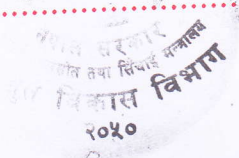 नेपाल सरकार
स्रोत तथा सिंचाई मन्त्रालय
विकास विभाग
२०५०